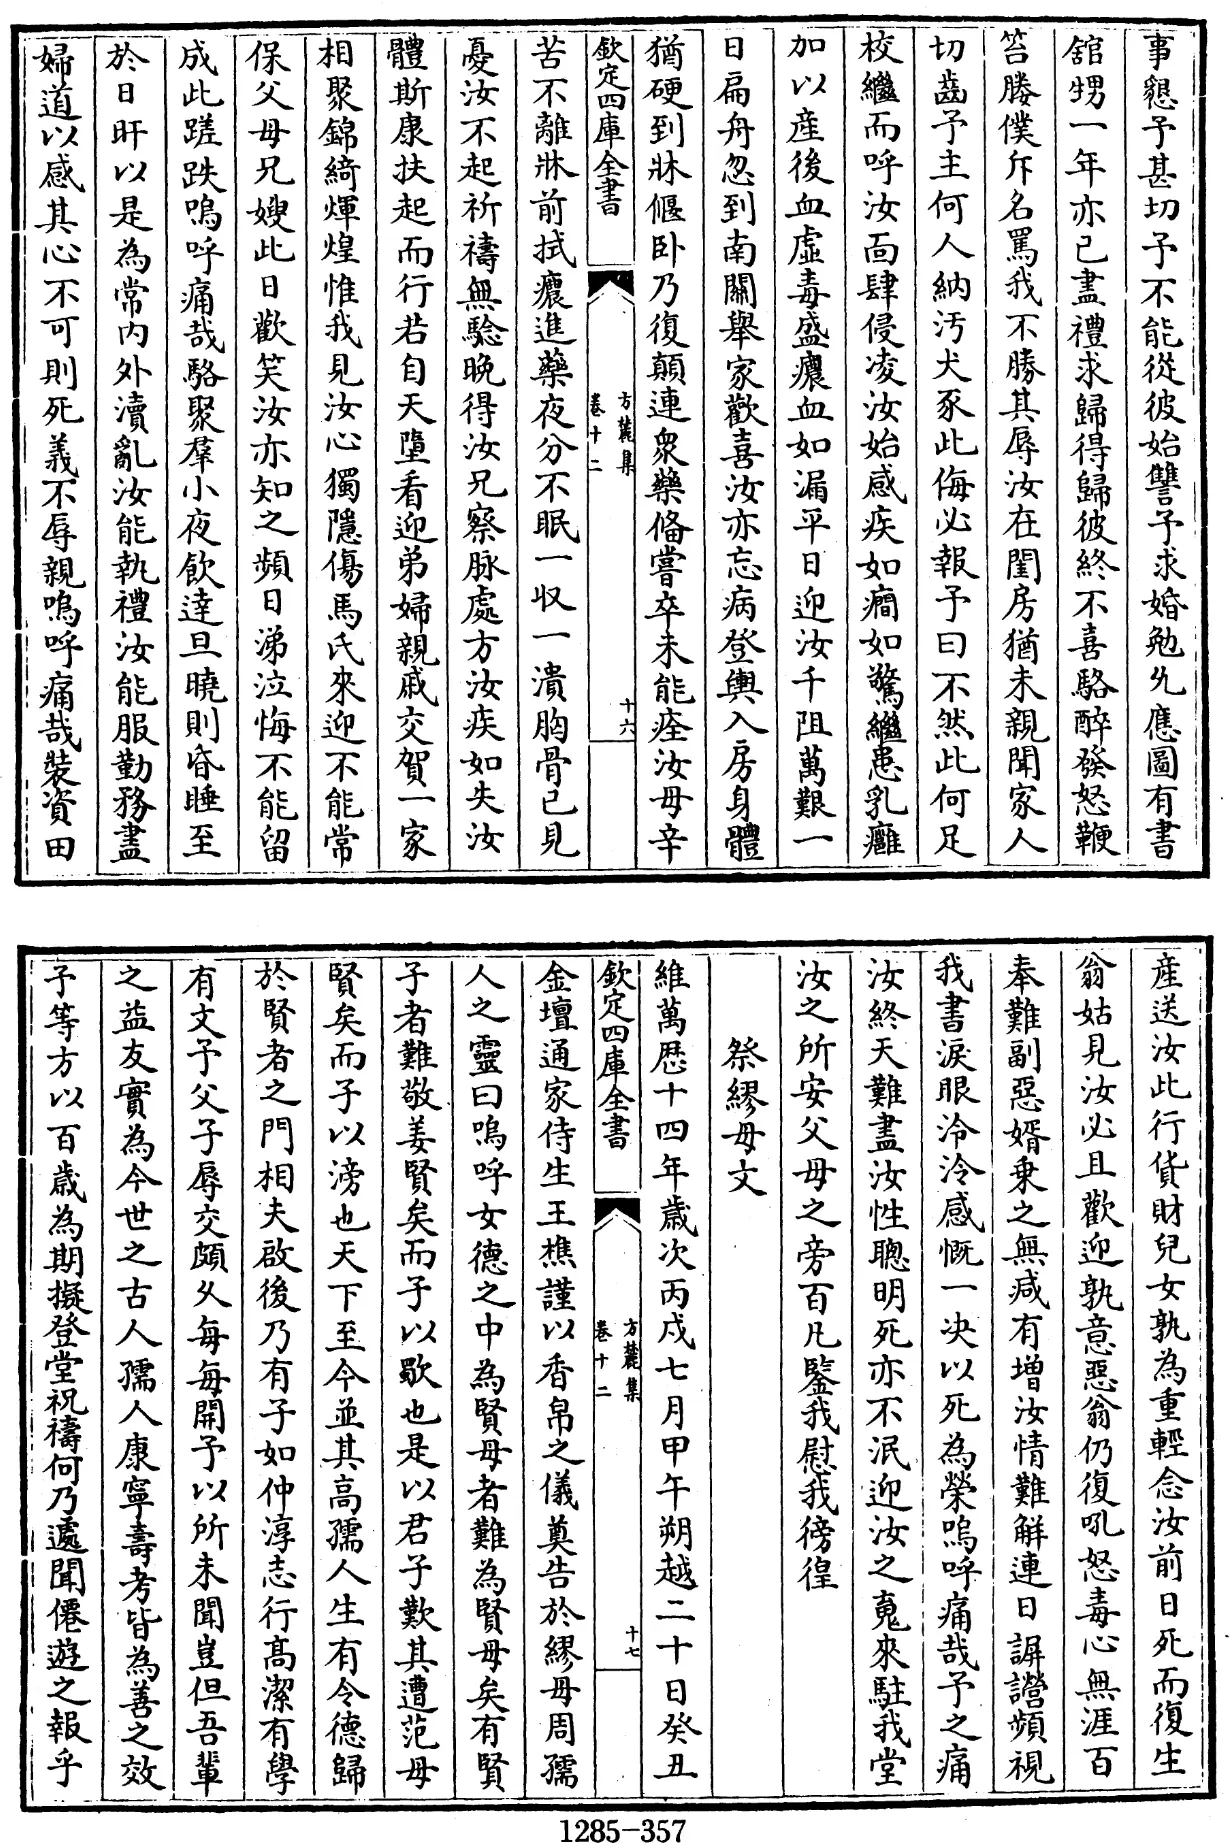 事懇予甚切予不能從彼始讐予求婚勉允應圖有書
舘甥一年亦已盡禮求歸得歸彼終不喜駱醉發怒鞭
笞媵僕斥名罵我不勝其辱汝在閨房猶未親聞家人
切齒予主何人納汚犬豕此侮必報予曰不然此何足
校繼而呼汝面肆侵凌汝始感疾如癎如驚繼患乳癰
加以産後血虛毒盛癑血如漏平日迎汝千阻萬艱一
日扁舟忽到南關舉家歡喜汝亦忘病登輿入房身體
猶硬到牀偃卧乃復顛連衆藥俻嘗卒未能痊汝母辛
欽定四庫全書
方麓集
卷十二
十六
苦不離牀前拭癑進藥夜分不眠一収一潰胸骨已見
憂汝不起祈禱無驗晚得汝兄察脉處方汝疾如失汝
體斯康扶起而行若自天墮看迎弟婦親戚交賀一家
相聚錦綺煇煌惟我見汝心獨隱傷馬氏來迎不能常
保父母兄嫂此日歡笑汝亦知之頻日涕泣悔不能留
成此蹉跌嗚呼痛哉駱聚羣小夜飲逹旦曉則昏睡至
於日旰以是為常内外瀆亂汝能執禮汝能服勤務盡
婦道以感其心不可則死義不辱親嗚呼痛哉裝資田
産送汝此行貨財兒女孰為重輕念汝前日死而復生
翁姑見汝必且歡迎孰意惡翁仍復吼怒毒心無涯百
奉難副惡婿乗之無减有增汝情難解連日謘謍頻視
我書淚眼泠泠感慨一决以死為榮嗚呼痛哉予之痛
汝終天難盡汝性聰明死亦不泯迎汝之䰟來駐我堂
汝之所安父母之旁百凡鑒我慰我徬徨
祭繆母文
維萬歴十四年歲次丙戌七月甲午朔越二十日癸丑
欽定四庫全書
方麓集
卷十二
十七
金壇通家侍生王樵謹以香帛之儀奠告於繆母周孺
人之靈曰嗚呼女德之中為賢母者難為賢母矣有賢
子者難敬姜賢矣而子以歜也是以君子歎其遭范母
賢矣而子以滂也天下至今並其高孺人生有令德歸
於賢者之門相夫啟後乃有子如仲淳志行髙潔有學
有文予父子辱交頗乆每每開予以所未聞豈但吾軰
之益友實為今世之古人孺人康寧壽考皆為善之效
予等方以百歲為期擬登堂祝禱何乃遽聞僊遊之報乎
1285-357